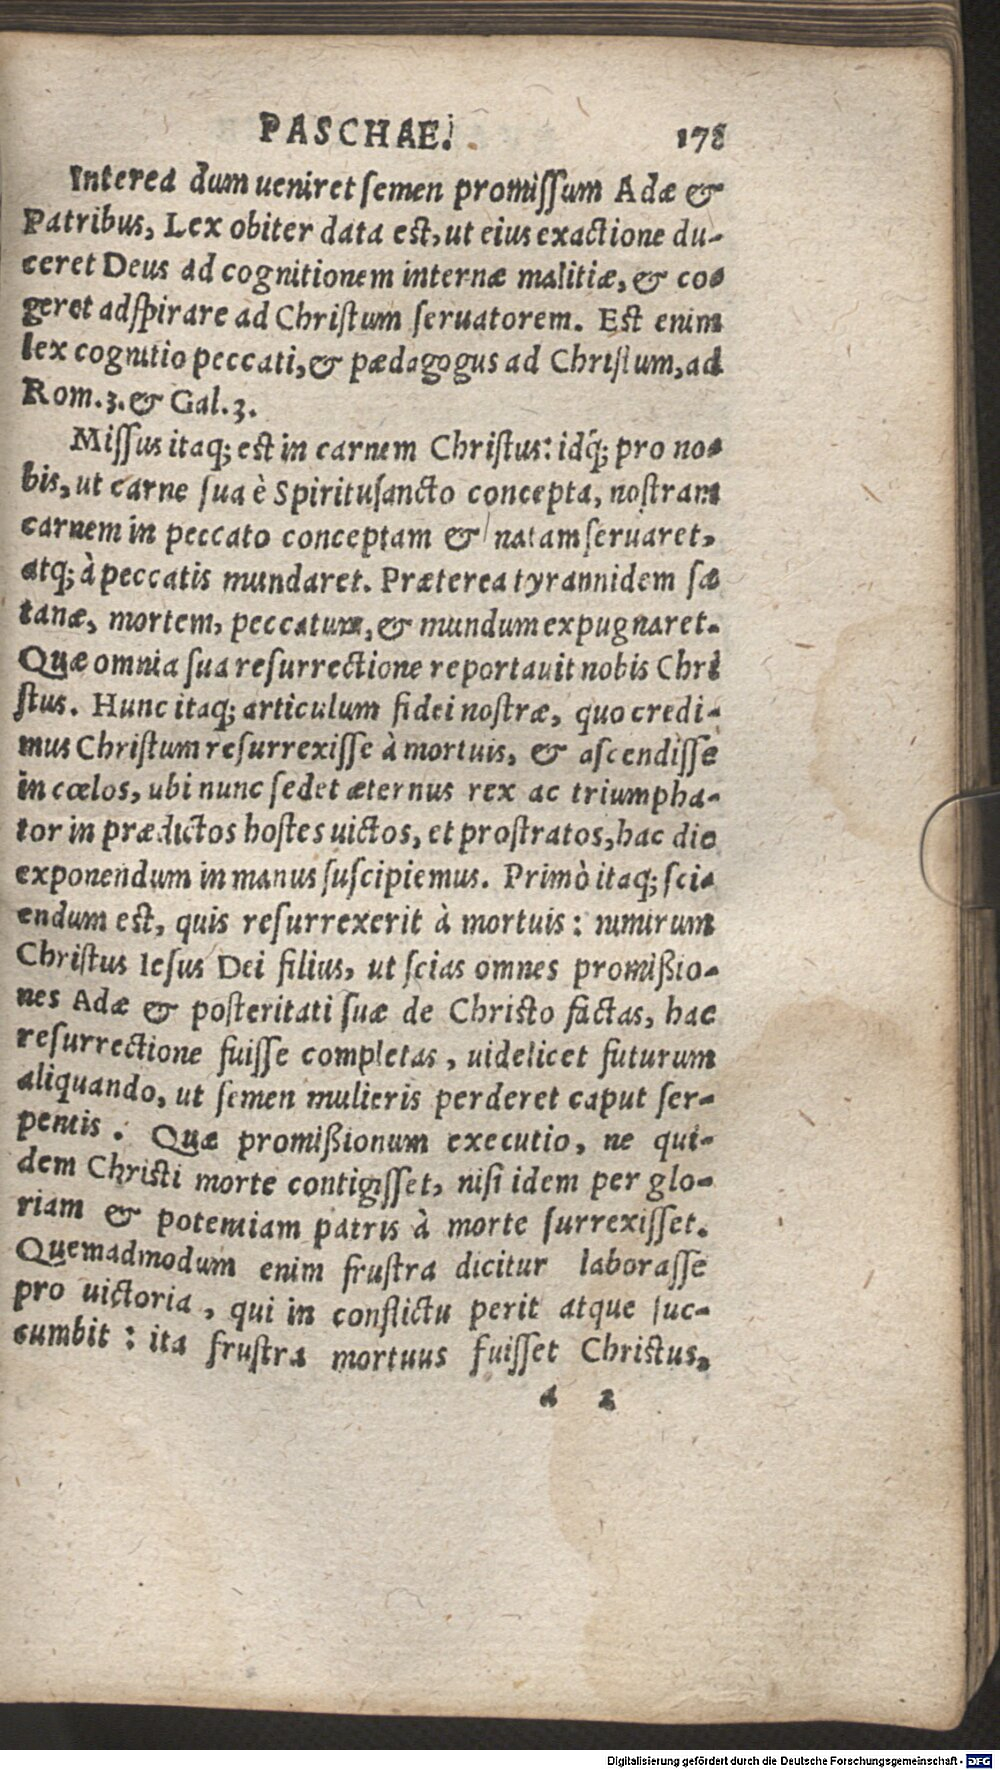 PASCHAE. 178
Interea dum ueniret semen promissum Adæ &
Patribus, Lex obiter data est, ut eius exactione du-
ceret Deus ad cognitionem internæ malitiæ, & co-
geret adspirare ad Christum seruatorem. Est enim
lex cognitio peccati, & pædagogus ad Christum, ad
Rom. 3. & Gal. 3.
Missus itaq; est in carnem Christus: idq́; pro no-
bis, ut carne sua è Spiritusancto concepta, nostram
carnem in peccato conceptam & natam seruaret,
atq; à peccatis mundaret. Præterea tyrannidem sa
tanæ, mortem, peccatum, & mundum expugnaret.
Quæ omnia sua resurrectione reportauit nobis Chri
stus. Hunc itaq; articulum fidei nostræ, quo credi-
mus Christum resurrexisse à mortuis, & ascendisse
in cœlos, ubi nunc sedet æternus rex ac triumpha-
tor in prædictos hostes uictos, et prostratos, hac die
exponendum in manus suscipiemus. Primò itaq; sci-
endum est, quis resurrexerit à mortuis: nimirum
Christus Iesus Dei filius, ut scias omnes promißio-
nes Adæ & posteritati suæ de Christo factas, hac
resurrectione fuisse completas, uidelicet futurum
aliquando, ut semen mulieris perderet caput ser-
pentis. Quæ promißionum executio, ne qui-
dem Christi morte contigisset, nisi idem per glo-
riam & potentiam patris à morte surrexisset.
Quemadmodum enim frustra dicitur laborasse
pro uictoria, qui in conflictu perit atque suc-
cumbit: ita frustra mortuus fuisset Christus,
a 2
Digitalisierung gefördert durch die Deutsche Forschungsgemeinschaft - DFG